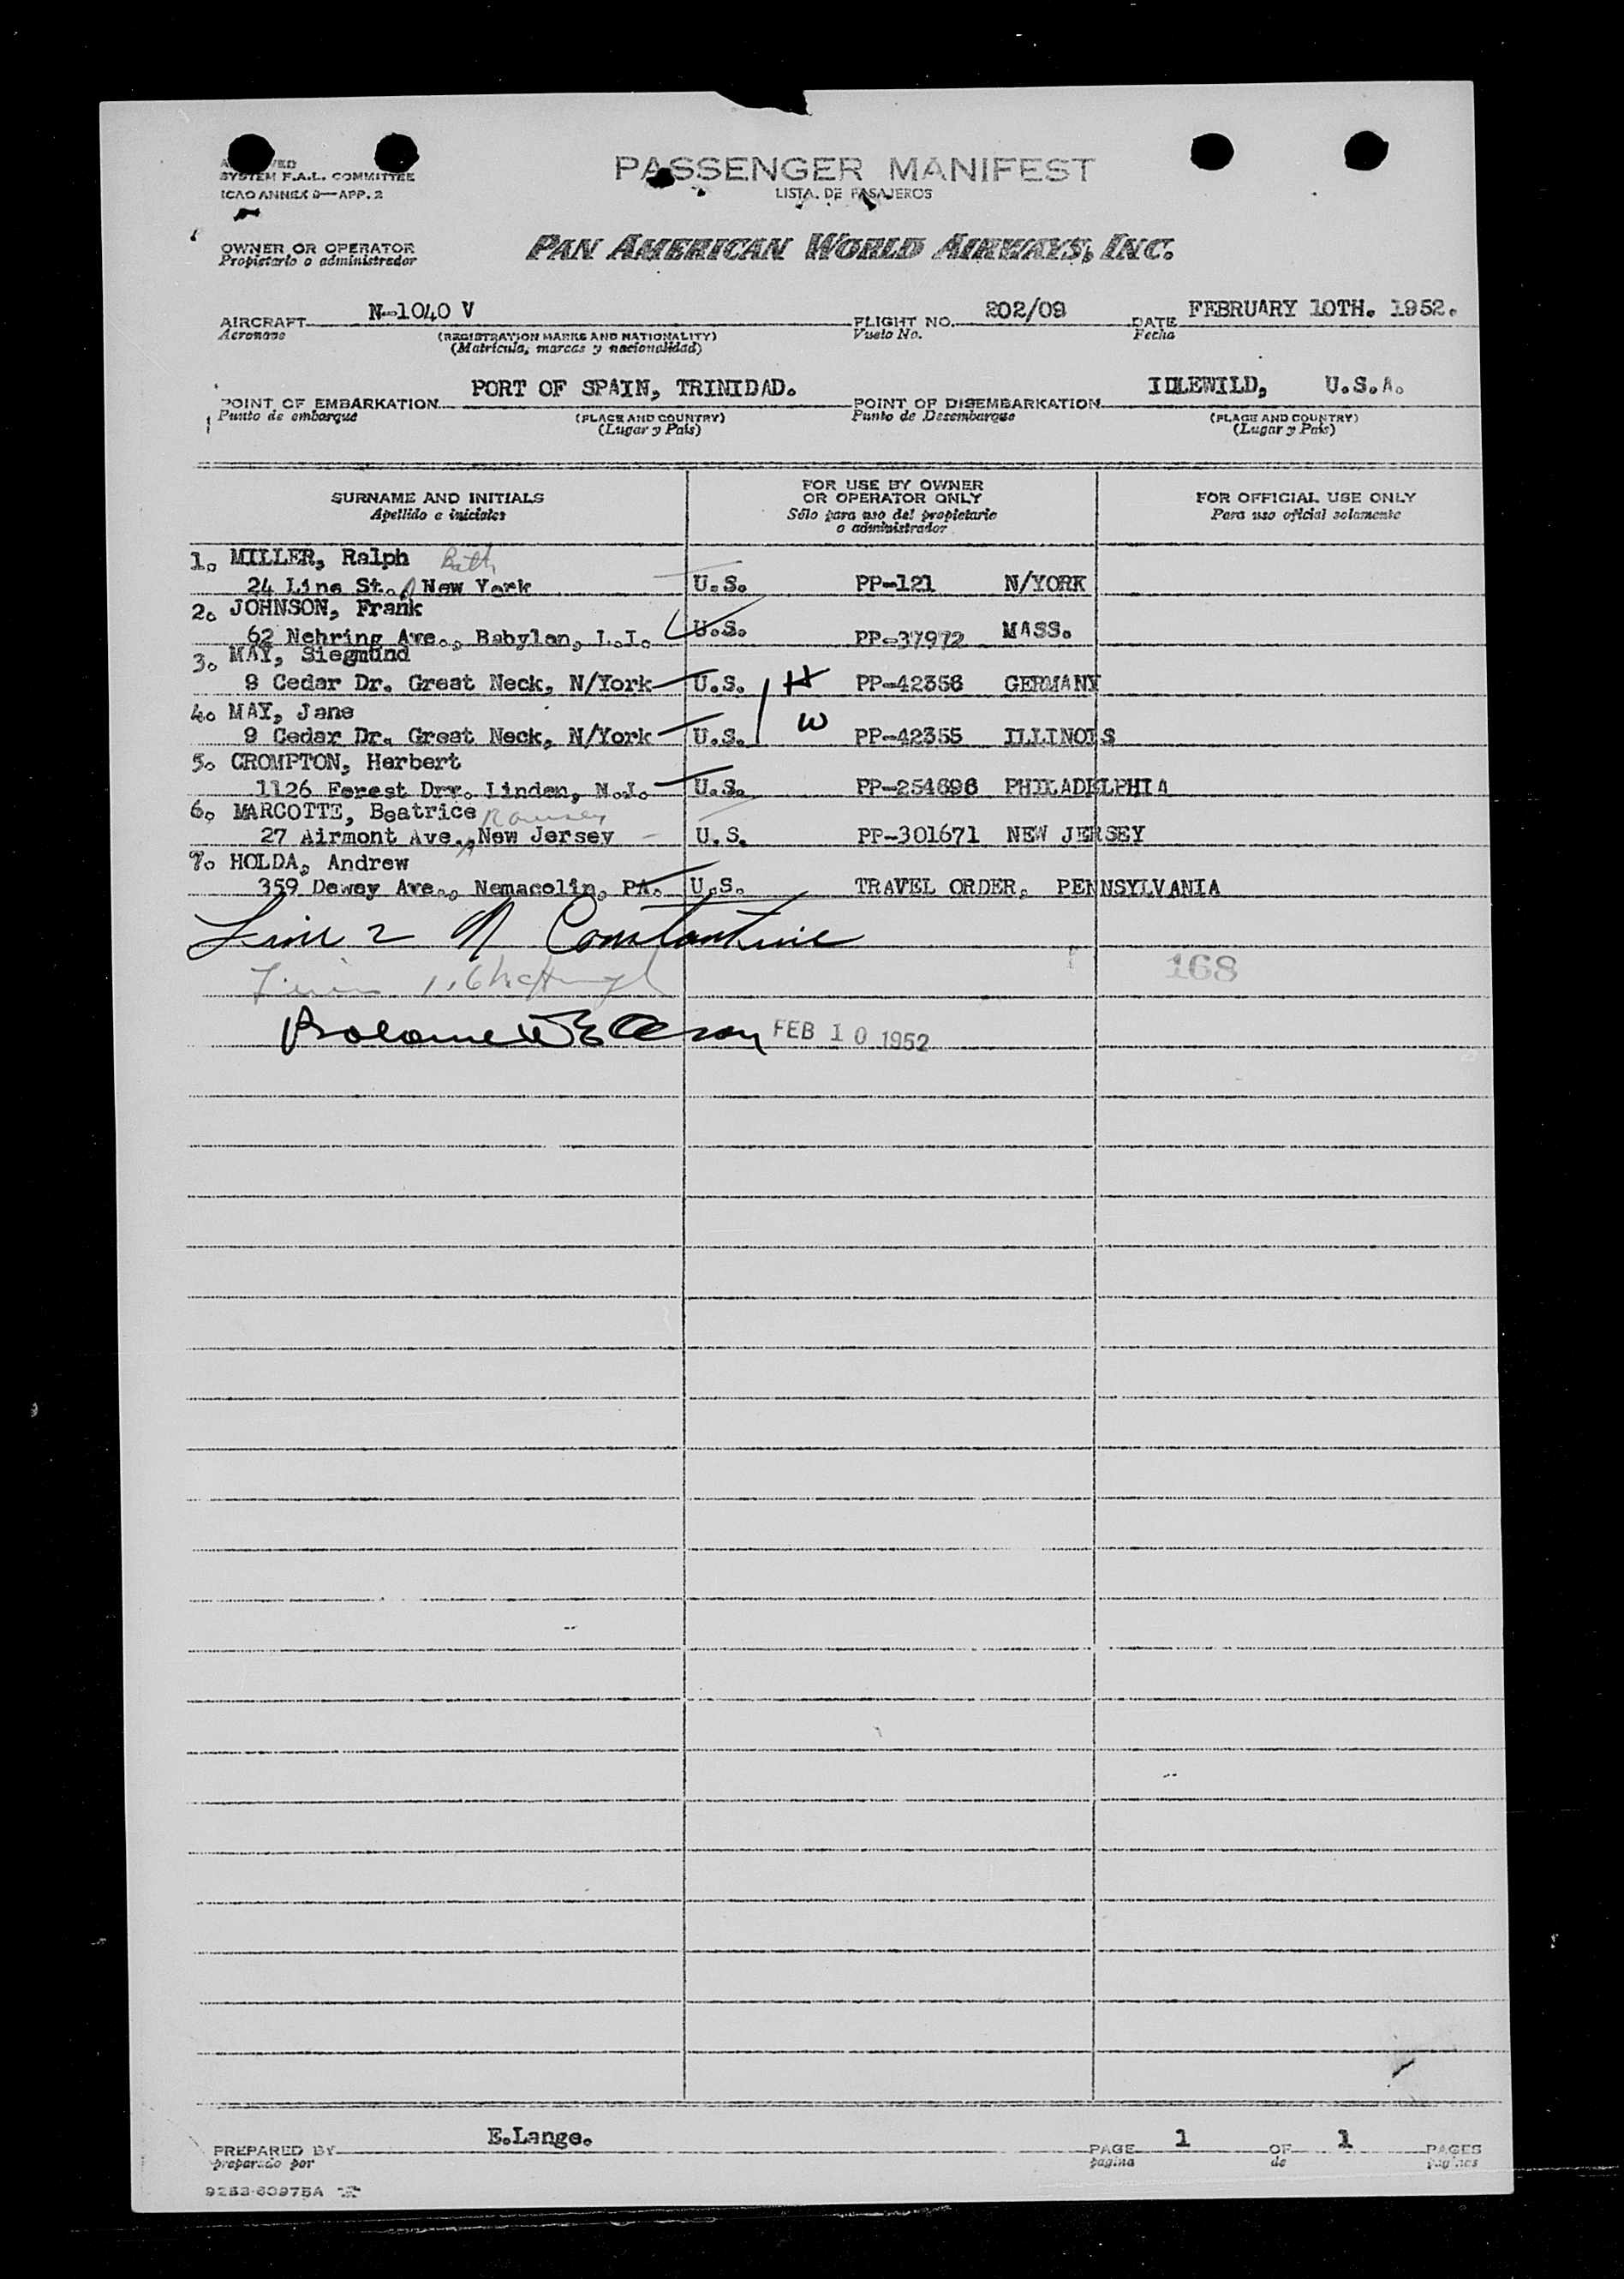 SYSTEM F.A.L. COMMITTEE
ICAO ANNEX 9—APP. 2
PASSENGER MANIFEST
LISTA DE PASAJEROS
OWNER OR OPERATOR
Propietario o administrador
PAN AMERICAN WORLD AIRWAYS, INC.
AIRCRAFT N-1040 V FLIGHT NO. 202/09 DATE FEBRUARY 10TH. 1952.
Aeronave (REGISTRATION MARKS AND NATIONALITY) Vuelo No. Fecha
(Matrícula, marcas y nacionalidad)
POINT OF EMBARKATION PORT OF SPAIN, TRINIDAD. POINT OF DISEMBARKATION IDLEWILD, U.S.A.
Punto de embarque (PLACE AND COUNTRY) Punto de Desembarque (PLACE AND COUNTRY)
(Lugar y País) (Lugar y País)
SURNAME AND INITIALS
Apellido e iniciales
FOR USE BY OWNER
OR OPERATOR ONLY
Sólo para uso del propietario
o administrador
FOR OFFICIAL USE ONLY
Para uso oficial solamente
1. MILLER, Ralph Bath
24 Line St., New York U.S. PP-121 N/YORK
2. JOHNSON, Frank
62 Nehring Ave., Babylon, L.I. U.S. PP-37972 MASS.
3. MAY, Siegmund
9 Cedar Dr. Great Neck, N/York U.S. H PP-42356 GERMANY
4. MAY, Jane
9 Cedar Dr. Great Neck, N/York U.S. W PP-42355 ILLINOIS
5. CROMPTON, Herbert
1126 Forest Drv. Linden, N.J. U.S. PP-254696 PHILADELPHIA
6. MARCOTTE, Beatrice Ramsey
27 Airmont Ave., New Jersey U.S. PP-301671 NEW JERSEY
7. HOLDA, Andrew
359 Dewey Ave., Nemacolin, PA. U.S. TRAVEL ORDER, PENNSYLVANIA
Line 2 N Constantine
168
FEB 10 1952
PREPARED BY E.Lange. PAGE 1 OF 1 PAGES
preparado por pagina de paginas
9253-60975A